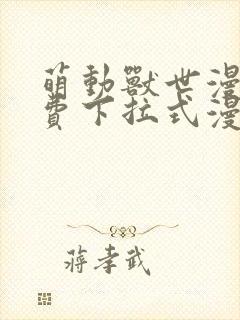 萌動獸世漫
費下拉式漫
蔣孝武